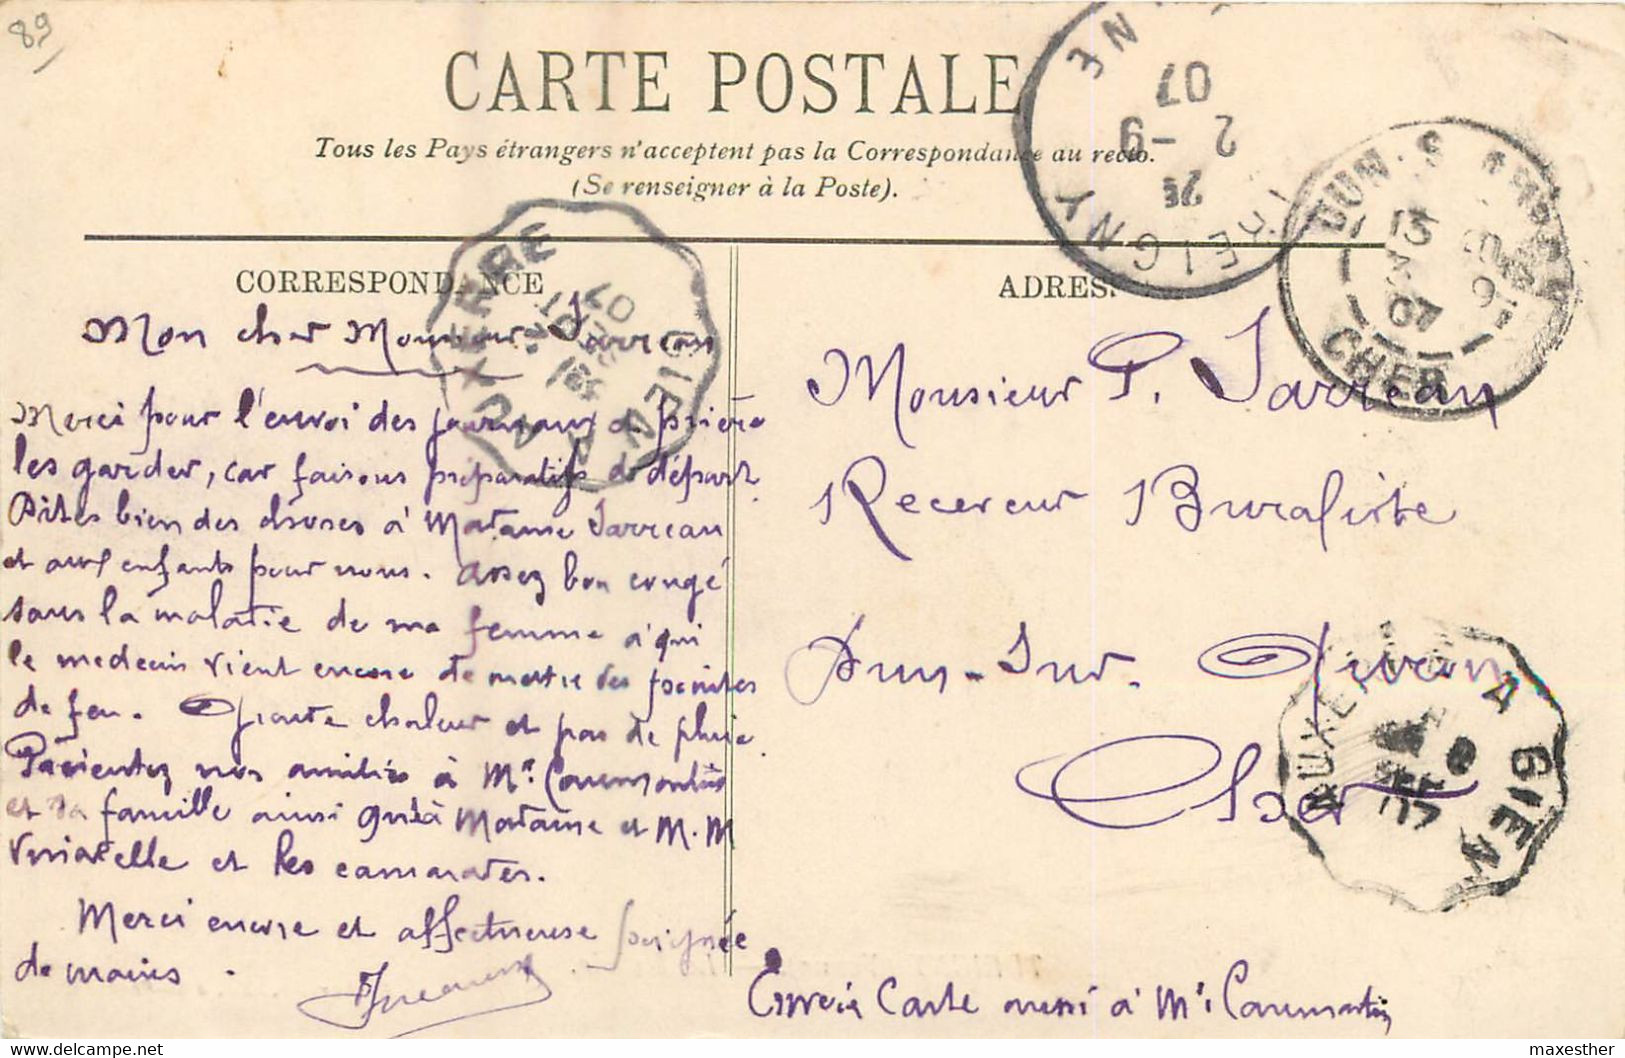 89
CARTE POSTALE
Tous les Pays étrangers n'acceptent pas la Correspondance au recto.
(Se renseigner à la Poste).
CORRESPONDANCE
Mon cher Monsieur Jarreau
Merci pour l'envoi des journaux et prière
les garder, car faisons préparatifs de départ.
Dites bien des choses à Madame Jarreau
et aux enfants pour nous. Assez bon congé
sans la maladie de ma femme à qui
le medecin vient encore de mettre des pointes
de feu. Grande chaleur et pas de pluie.
Présentez nos amitiés à Mr Caumartin
et sa famille ainsi qu'à Madame et M. M
et les camarades.
Merci encore et affectueuse poignée
de mains.
ADRESSE
Monsieur P. Jarreau
Receveur Buraliste
Dun-sur-Auron
Cher
Envoie Carte aussi à Mr Caumartin
TREIGNY
YONNE
25
2-9
07
DUN-S-AURON
13
07
CHER
AUXERRE A GIEN
07
AUXERRE A GIEN
SEPT
07
www.delcampe.net
maxesther